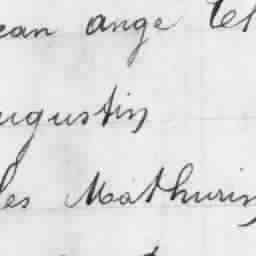 ean ange
ugustin
les Mathurin